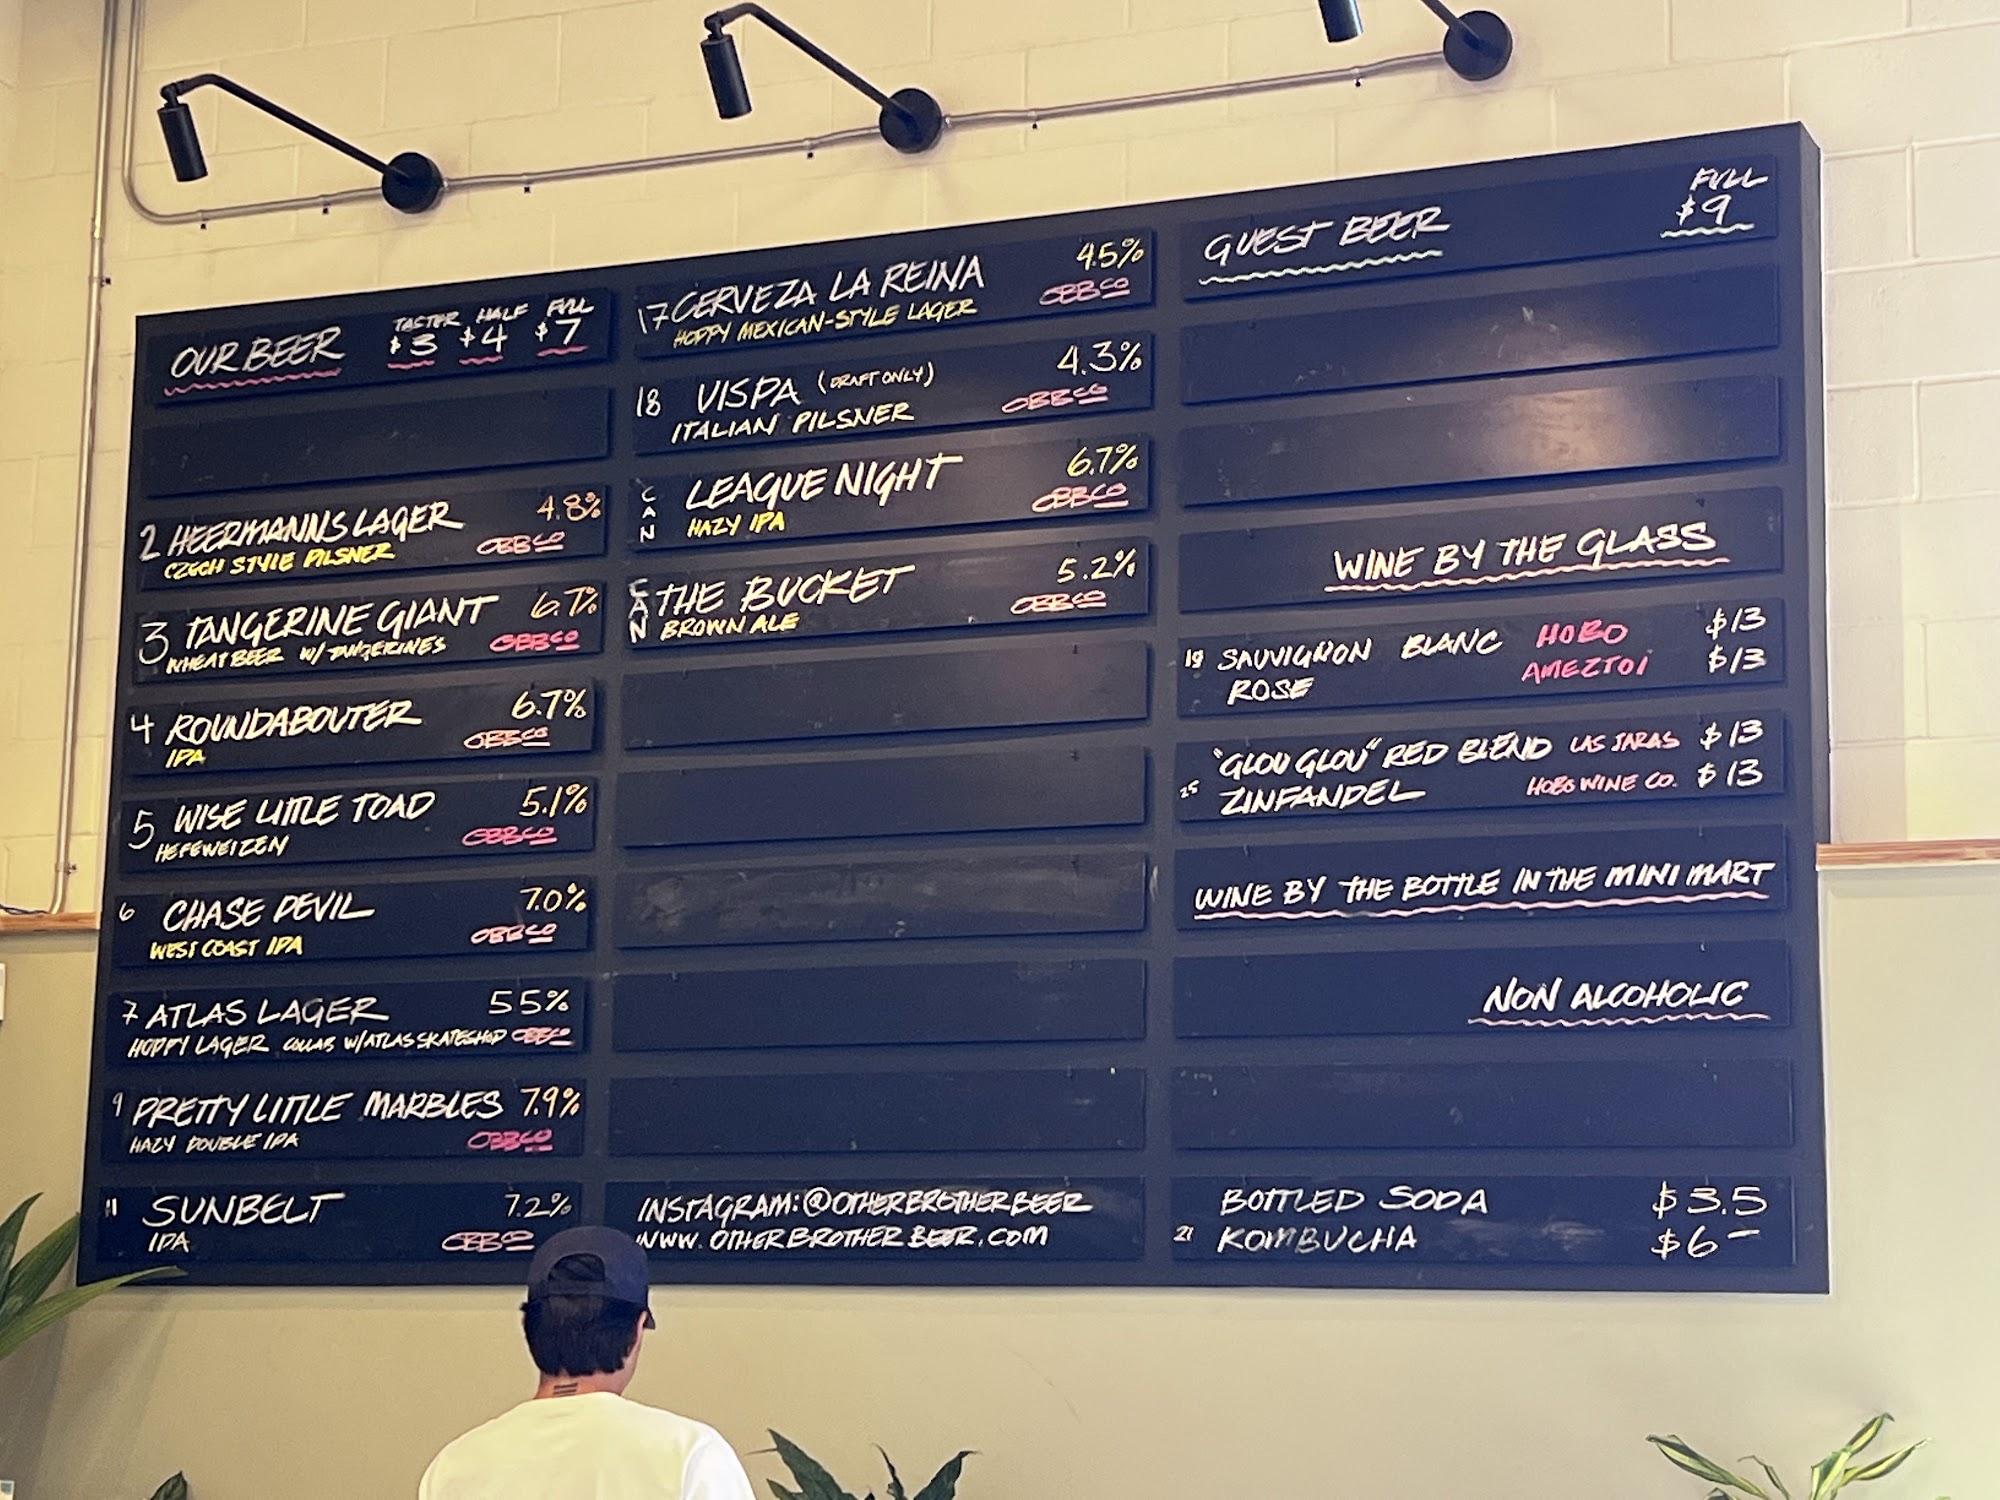 OUR BEER TASTER HALF FULL
$3 $4 $7
2 HEERMANNS LAGER 4.8%
CZECH STYLE PILSNER OBBCO
3 TANGERINE GIANT 6.7%
WHEAT BEER W/ TANGERINES OBBCO
4 ROUNDABOUTER 6.7%
IPA OBBCO
5 WISE LITTLE TOAD 5.1%
HEFEWEIZEN OBBCO
6 CHASE DEVIL 7.0%
WEST COAST IPA OBBCO
7 ATLAS LAGER 55%
HOPPY LAGER COLLAB W/ATLAS SKATESHOP OBBCO
9 PRETTY LITTLE MARBLES 7.9%
HAZY DOUBLE IPA OBBCO
11 SUNBELT 7.2%
IPA OBBCO
17 CERVEZA LA REINA 4.5%
HOPPY MEXICAN-STYLE LAGER OBBCO
18 VISPA (DRAFT ONLY) 4.3%
ITALIAN PILSNER OBBCO
CAN LEAGUE NIGHT 6.7%
HAZY IPA OBBCO
CAN THE BUCKET 5.2%
BROWN ALE OBBCO
INSTAGRAM: @OTHERBROTHERBEER
WWW.OTHERBROTHERBEER.COM
GUEST BEER FULL
$9
WINE BY THE GLASS
19 SAUVIGNON BLANC HOBO $13
ROSE AMEZTOI $13
"GLOU GLOU" RED BLEND LAS JARAS $13
25 ZINFANDEL HOBO WINE CO. $13
WINE BY THE BOTTLE IN THE MINI MART
NON ALCOHOLIC
BOTTLED SODA $3.5
21 KOMBUCHA $6-